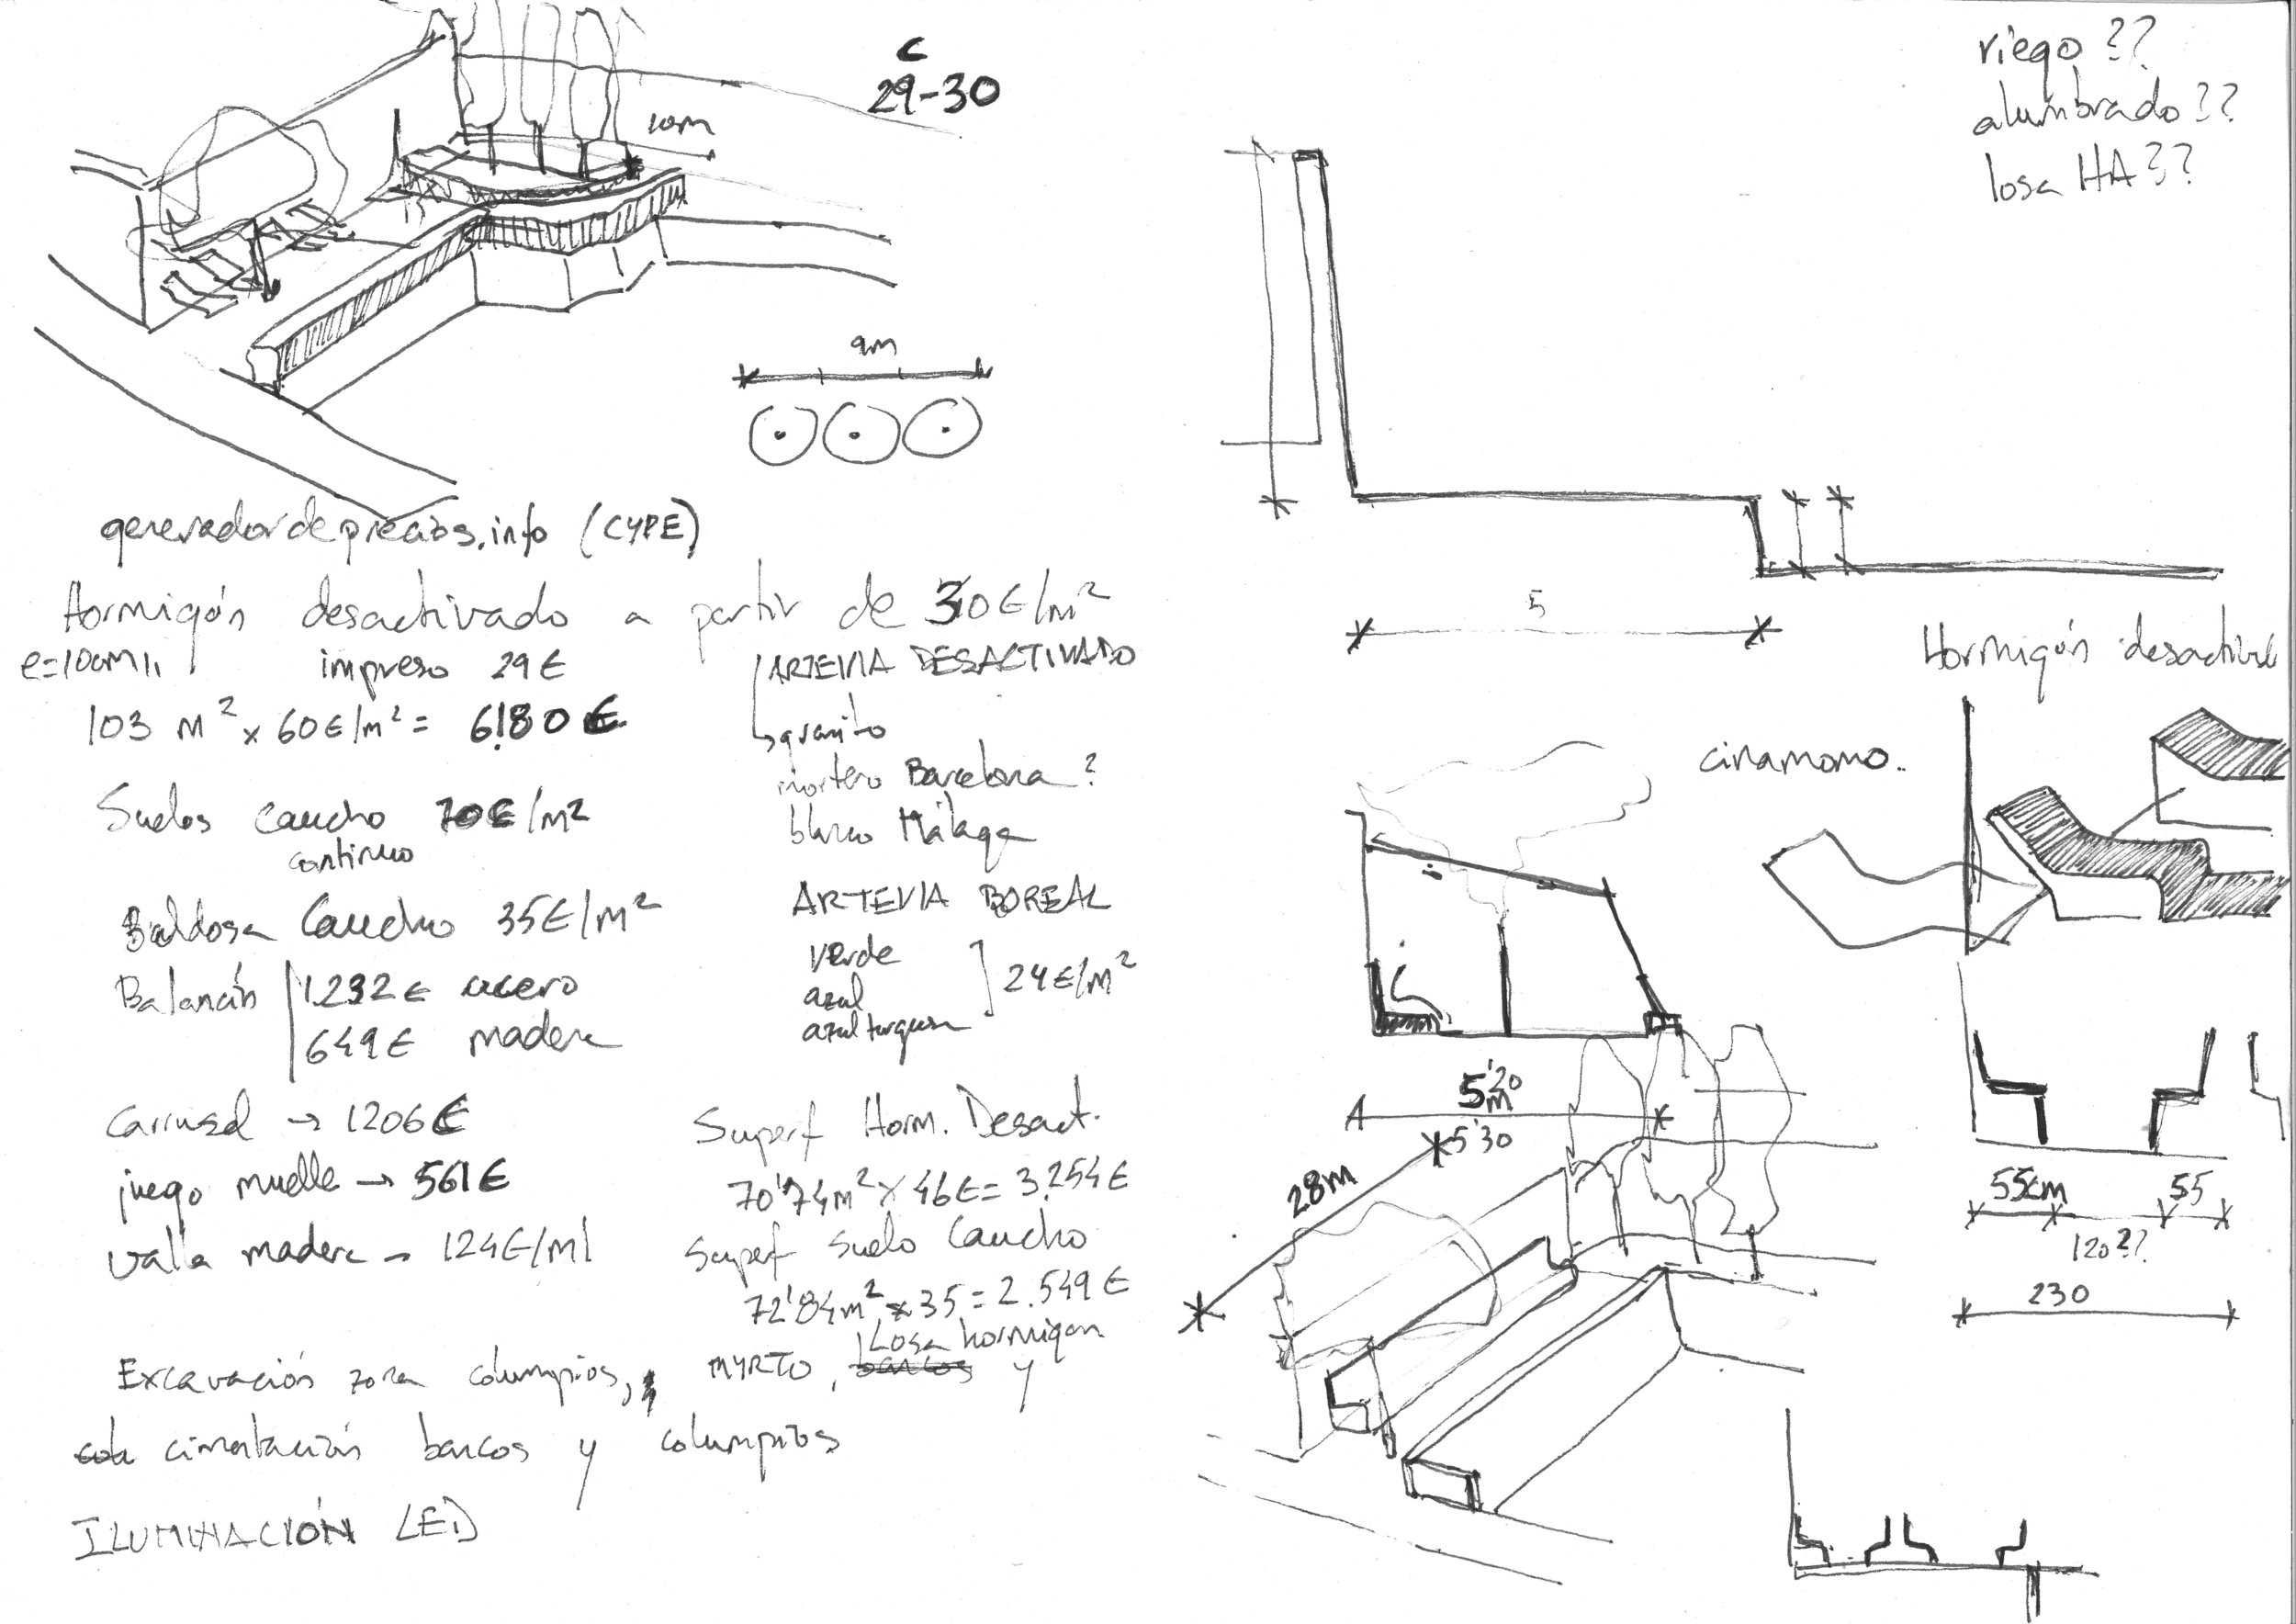 C
29-30
10m
9m
generadordeprecios.info (CYPE)
Hormigón desactivado a partir de 30€/m²
e=10cm
impreso 29€
103 m² x 60€/m² = 6.180€
Suelos caucho 70€/m²
continuo
Baldosa Caucho 35€/m²
Balancín 1.232€ acero
649€ madera
Carrusel → 1206€
juego muelle → 561€
valla madera → 124€/ml
ARTEVIA DESACTIVADO
granito
mortero Barcelona ?
blanco Málaga
ARTEVIA BOREAL
verde
azul
azul turquesa
24€/m²
Superf Horm. Desact.
70'74m² x 46€ = 3.254€
Superf Suelo Caucho
72'84m² x 35 = 2.549€
Losa hormigon
Excavación zona columpios, MYRTO, bancos y
cimentación bancos y columpios
ILUMINACIÓN LED
riego ??
alumbrado ??
losa HA ??
5
Hormigón
cinamomo.
5'20
m
5'30
28m
55cm
55
120??
230